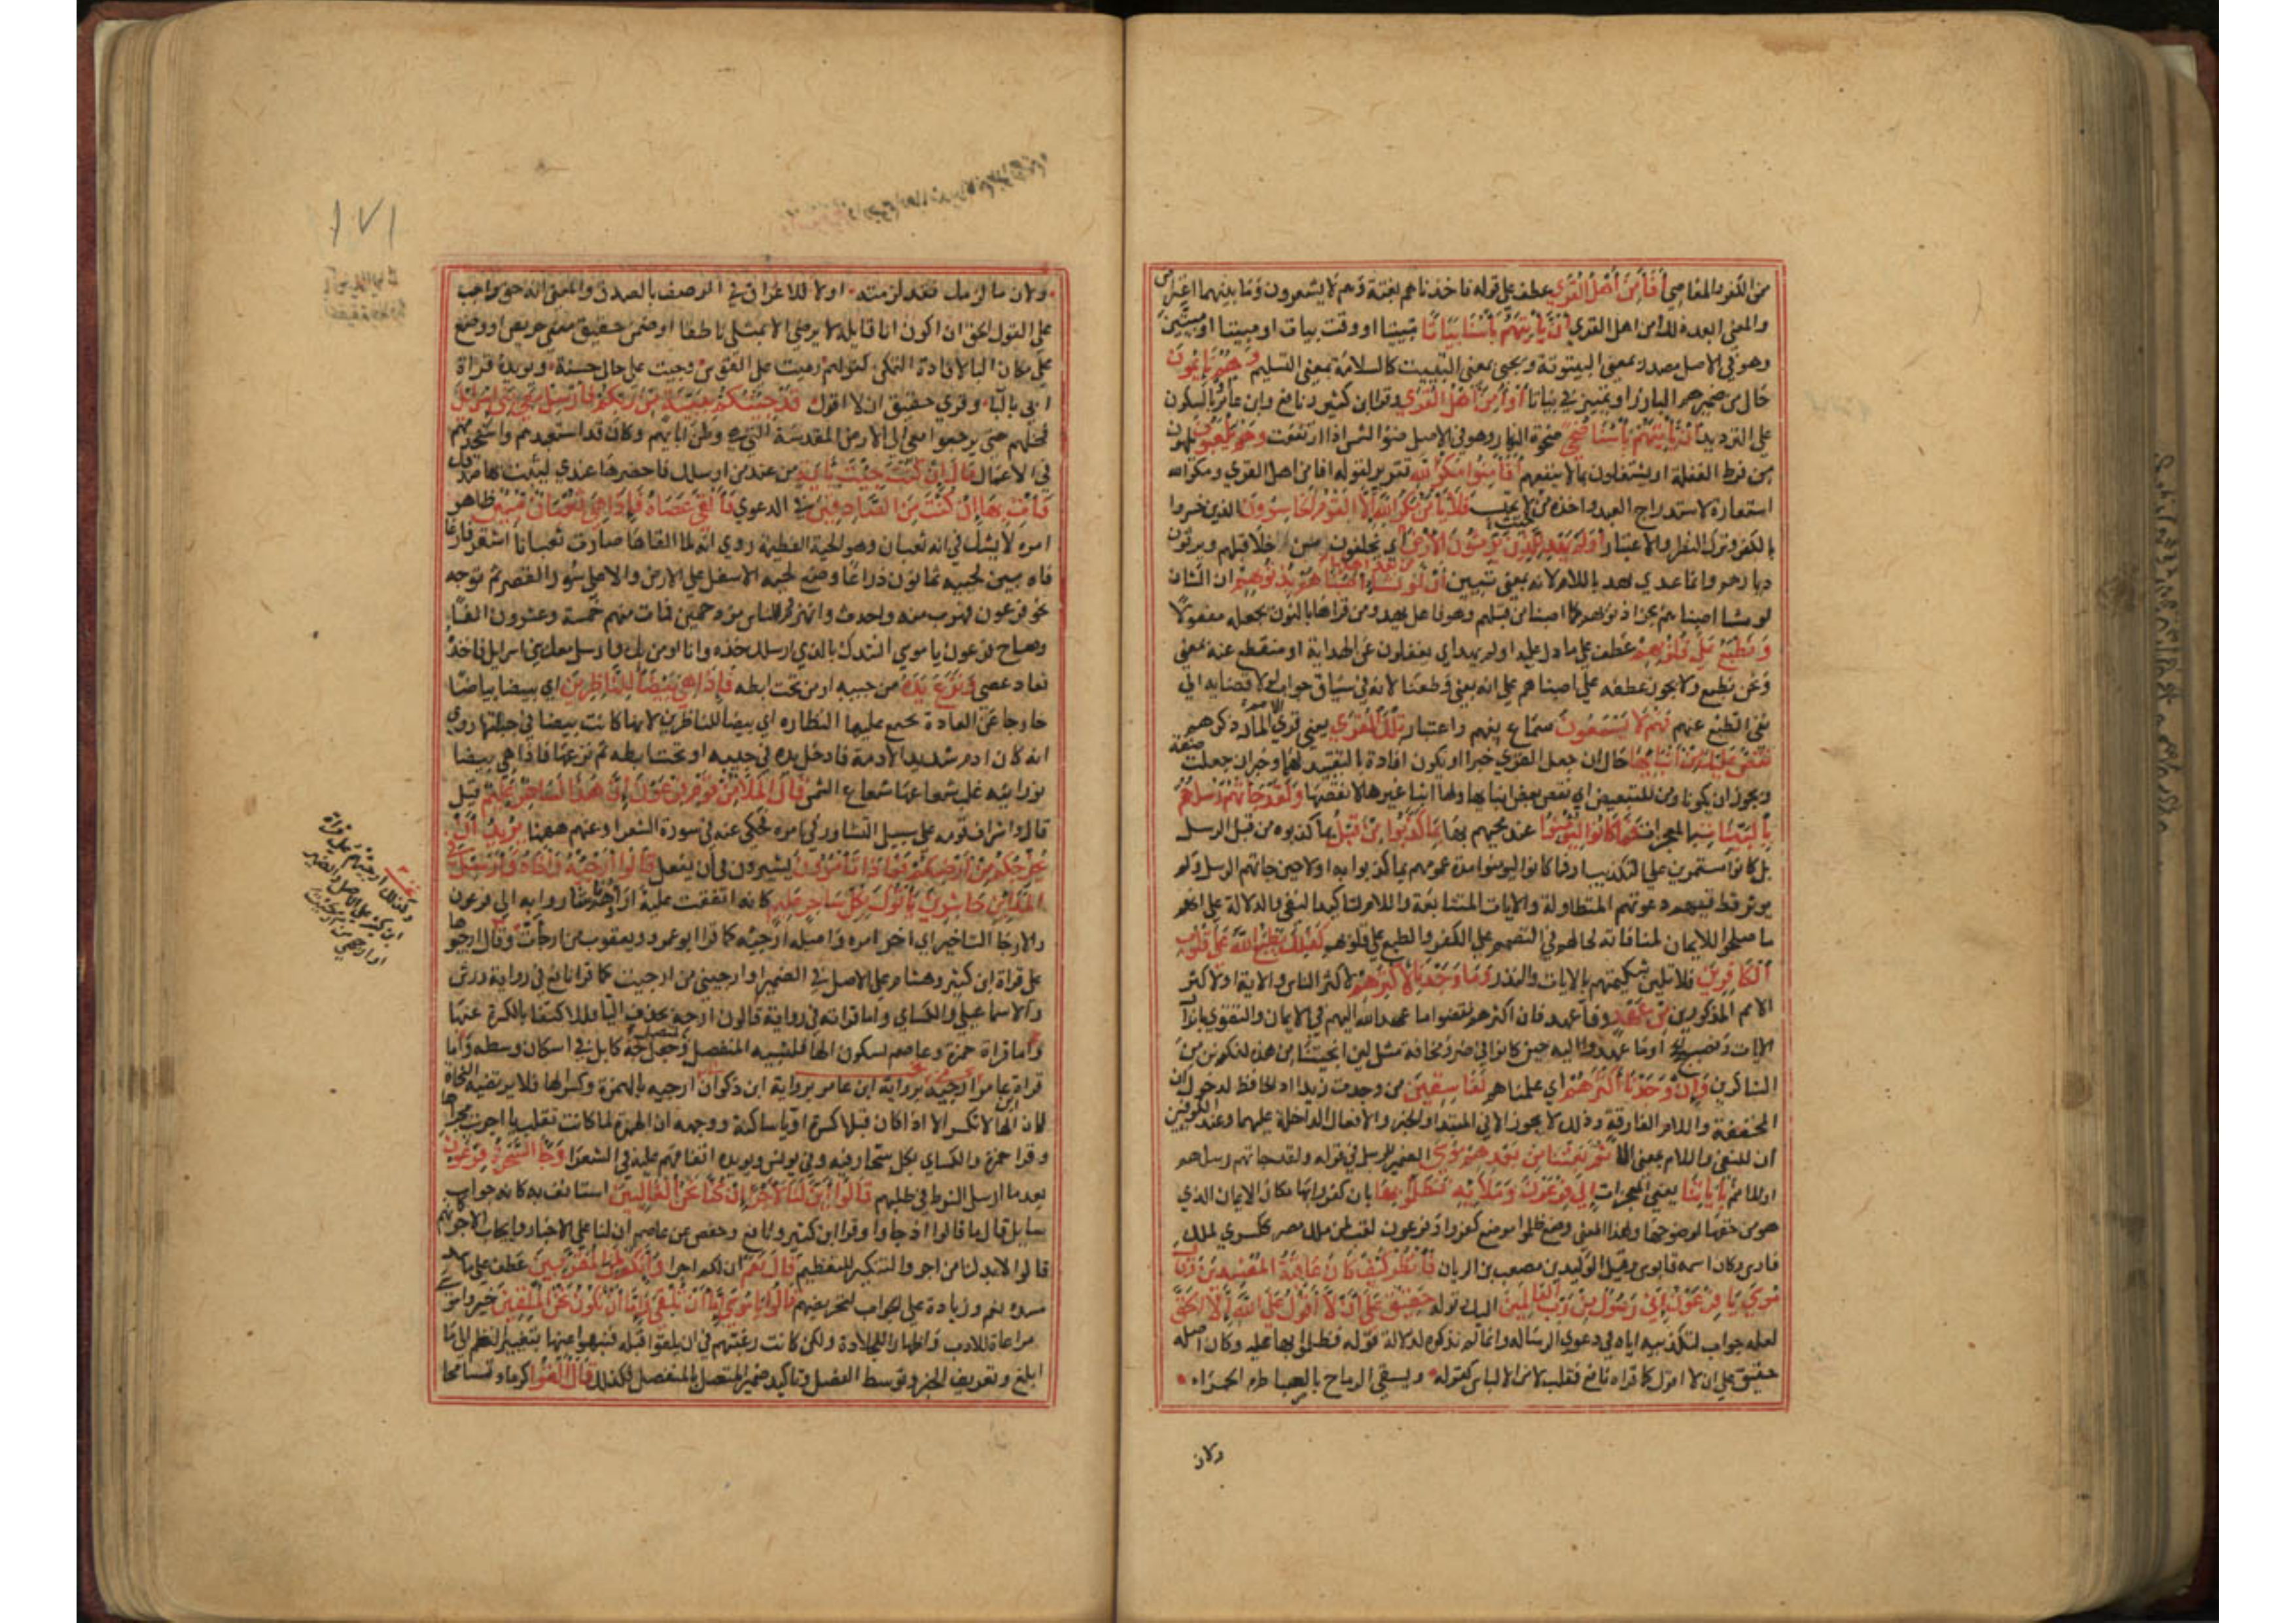 من الكفر والمعاصي أفأمن أهل القرى عطف على قوله فاخذناهم بغتة وهم لا يشعرون وما بينهما اعتراض
والمعنى ابعد ذلك امن اهل القرى أن يأتيهم بأسنا بياتا تبييتا او وقت بيات او مبيتا او مبيتين
وهو في الاصل مصدر بمعنى البيتوتة ويجيء بمعنى التبييت كالسلام بمعنى التسليم وهم نائمون
حال من ضميرهم البارز او المستتر في بياتا أو أمن أهل القرى وقرا ابن كثير ونافع وابن عامر بالسكون
على الترديد أن يأتيهم بأسنا ضحى ضحوة النهار وهو في الاصل ضوء الشمس اذا ارتفعت وهم يلعبون يلهون
من فرط الغفلة او يشتغلون بما لا ينفعهم أفأمنوا مكر الله تقرير لقوله افامن اهل القرى ومكر الله
استعارة لاستدراج العبد واخذه من حيث لا يحتسب فلا يأمن مكر الله إلا القوم الخاسرون الذين خسروا
بالكفر وترك النظر والاعتبار أولم يهد للذين يرثون الأرض من بعد أهلها اي يخلفون من خلا قبلهم ويرثون
ديارهم وانما عدي يهد باللام لانه بمعنى تبيين أن لو نشاء أصبناهم بذنوبهم ان الشان
لو نشا اصبناهم بجزا ذنوبهم كما اصبنا من قبلهم وهو فاعل يهد ومن قراه بالنون جعله مفعولا
ونطبع على قلوبهم عطف على ما دل عليه اولم يهد اي يغفلون عن الهداية او منقطع عنه بمعنى
ونحن نطبع ولا يجوز عطفه على اصبناهم على انه بمعنى وطبعنا لانه في سياق جواب لو لافضائه الى
نفي الطبع عنهم فهم لا يسمعون سماع تفهم واعتبار تلك القرى يعني قرى الامم المار ذكرهم
نقص عليك من أنبائها حال ان جعل القرى خبرا ويكون افادته بالتقييد لها وخبر ان جعلت صفة
ويجوز ان يكونا ومن للتبعيض اي نقص بعض انبائها ولها انبا غيرها لا نقصها ولقد جاءتهم رسلهم
بالبينات بالمعجزات فما كانوا ليؤمنوا عند مجيهم بها بما كذبوا من قبل بما كذبوه من قبل الرسل
بل كانوا مستمرين على التكذيب او فما كانوا ليومنوا مدة عمرهم بما كذبوا به اولا حين جاتهم الرسل ولم
يوثر قط فيهم دعوتهم المتطاولة والايات المتتابعة واللام لتاكيد النفي والدلالة على انهم
ما صلحوا للايمان لمنافاته لحالهم في التصميم على الكفر والطبع على قلوبهم كذلك يطبع الله على قلوب
الكافرين فلا تلين شكيمتهم بالايات والنذر وما وجدنا لأكثرهم لاكثر الناس والاية او لاكثر
الامم المذكورين من عهد وفا عهد فان اكثرهم نقضوا ما عهد الله اليهم في الايمان والتقوى بانزال
الايات ونصب الحجج او ما عهدوا اليه حين كانوا في ضر ومخافة مثل لئن انجيتنا من هذه لنكونن من
الشاكرين وإن وجدنا أكثرهم اي علمناهم لفاسقين من وجدت زيدا ذا الحفاظ لدخول ان
المخففة واللام الفارقة وذلك لا يجوز الا في المبتدا والخبر والافعال الداخلة عليهما وعند الكوفيين
ان للنفي واللام بمعنى الا ثم بعثنا من بعدهم موسى الضمير للرسل في قوله ولقد جاتهم رسلهم
او للامم بآياتنا يعني المعجزات إلى فرعون وملئه فظلموا بها بان كفروا بها مكان الايمان الذي
هو من حقها لوضوحها ولهذا المعنى وضع ظلموا موضع كفروا وفرعون لقب لمن ملك مصر ككسرى لملك
فارس وكان اسمه قابوس وقيل الوليد بن مصعب بن الريان فانظر كيف كان عاقبة المفسدين وقال
موسى يا فرعون إني رسول من رب العالمين اليك قوله حقيق على أن لا أقول على الله إلا الحق
لعله جواب لتكذيبه اياه في دعوى الرسالة وانما لم يذكره لدلالة قوله فظلموا بها عليه وكان اصله
حقيق علي ان لا اقول كما قراه نافع فقلب لامن الالباس كقوله ويسقي الرماح بالضياطرة الحمر
ولان
١٧١
ولان ما لزمك فقد لزمته او للاغراق في الوصف بالصدق والمعنى انه حق واجب
على القول الحق ان اكون انا قايله لا يرضى الا بمثلي ناطقا او ضمن حقيق معنى حريص او وضع
على مكان البا لافادة التمكن كقولهم رميت على القوس وجيت على حال حسنة ويؤيده قراة
ابي بالبا وقري حقيق ان لا اقول قد جئتكم ببينة من ربكم فأرسل معي بني إسرائيل
فخلهم حتى يرجعوا معي الى الارض المقدسة التي هي وطن ابايهم وكان قد استعبدهم واستخدمهم
في الاعمال قال إن كنت جئت بآية من عند من ارسلك فاحضرها عندي ليثبت بها صدقك
فأت بها إن كنت من الصادقين في الدعوى فألقى عصاه فإذا هي ثعبان مبين ظاهر
امره لا يشك في انه ثعبان وهو الحية العظيمة روي انه لما القاها صارت ثعبانا اشعر فاغرا
فاه بين لحييه ثمانون ذراعا وضع لحيه الاسفل على الارض والاعلى على سور القصر ثم توجه
نحو فرعون فهرب منه واحدث وانهزم الناس مزدحمين فمات منهم خمسة وعشرون الفا
وصاح فرعون يا موسى انشدك بالذي ارسلك خذه وانا اومن بك وارسل معك بني اسرايل فاخذه
فعاد عصى ونزع يده من جيبه او من تحت ابطه فإذا هي بيضاء للناظرين اي بيضا بياضا
خارجا عن العادة يجتمع عليها النظاره اي بيضا للناظرين لا انها كانت بيضا في جبلتها روي
انه كان ادم شديد الادمة فادخل يده في جيبه او تحت ابطه ثم نزعها فاذا هي بيضا
نورانيه غلب شعاعها شعاع الشمس قال الملأ من قوم فرعون إن هذا لساحر عليم قيل
قاله واشراف قومه على سبيل التشاور في امره فحكي عنه في سورة الشعرا وعنهم ههنا يريد أن
يخرجكم من أرضكم فماذا تأمرون تشيرون في ان نفعل قالوا أرجه وأخاه وأرسل في
المدائن حاشرين يأتوك بكل ساحر عليم كانه اتفقت عليه اراوهم فاشاروا به الى فرعون
والارجا التاخير اي اخر امره واصله ارجئه كما قرا ابو عمرو ويعقوب من ارجأت وقال ارجئهو
على قراة ابن كثير وهشام على الاصل في الضمير او ارجيهي من ارجيت كما قرا نافع في رواية ورش
والاسماعيلي والكساي واما قراته في رواية قالون ارجه بحذف اليا فللاكتفا بالكسرة عنها
واما قراة حمزة وعاصم بسكون الها فلتشبيه المنفصل بالمتصل وجعل جه كابل في اسكان وسطه واما
قراة ابن عامر برواية ابن ذكوان ارجئه بالهمزة وكسر الها فلا يرتضيه النحاة
فان الها لا تكسر الا اذا كان قبلها كسرة او يا ساكنة ووجهه ان الهمزة لما كانت تقلب يا اجريت مجراها
وقرا حمزة والكساي بكل سحار فيه وفي يونس ويؤيده اتفاقهم عليه في الشعرا وجاء السحرة فرعون
بعد ما ارسل الشرط في طلبهم قالوا أئن لنا لأجرا إن كنا نحن الغالبين استانف به كانه جواب
سايل قال ما قالوا اذ جاوا وقرا ابن كثير ونافع وحفص عن عاصم ان لنا على الاخبار وايجاب الاجر كانهم
قالوا لابد لنا من اجر والتنكير للتعظيم قال نعم ان لكم اجرا وإنكم لمن المقربين عطف على ما سد
مسده نعم وزيادة على الجواب لتحريضهم قالوا يا موسى إما أن تلقي وإما أن نكون نحن الملقين خيروا موسى
مراعاة للادب واظهارا للجلادة ولكن كانت رغبتهم في ان يلقوا قبله فنبهوا عنها بتغيير النظم الى ما
ابلغ وتعريف الخبر وتوسط الفصل وتاكيد ضميرهم المتصل بالمنفصل فلذلك قال ألقوا كرما وتسامحا